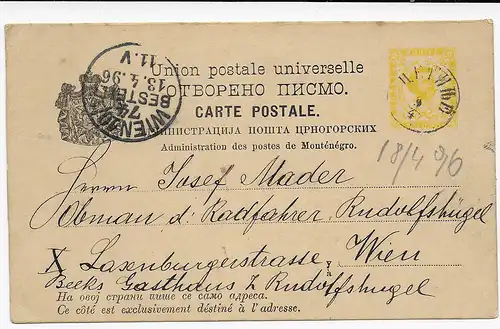 Union postale universelle
ОТВОРЕНО ПИСМО.
CARTE POSTALE.
АДМИНИСТРАЦИЈА ПОШТА ЦРНОГОРСКИХ
Administration des postes de Monténégro.
WIEN
7½ V
BESTELLT
13.4.96
11.V
ЦЕТИЊЕ
18/4 96
Herrn Josef Mader
Obman d. Radfahrer, Rudolfshügel
X Laxenburgerstrasse Wien
Beeks Gasthaus z Rudolfshugel
На овој страни пише се само адреса.
Ce côté est exclusivement déstiné à l'adresse.